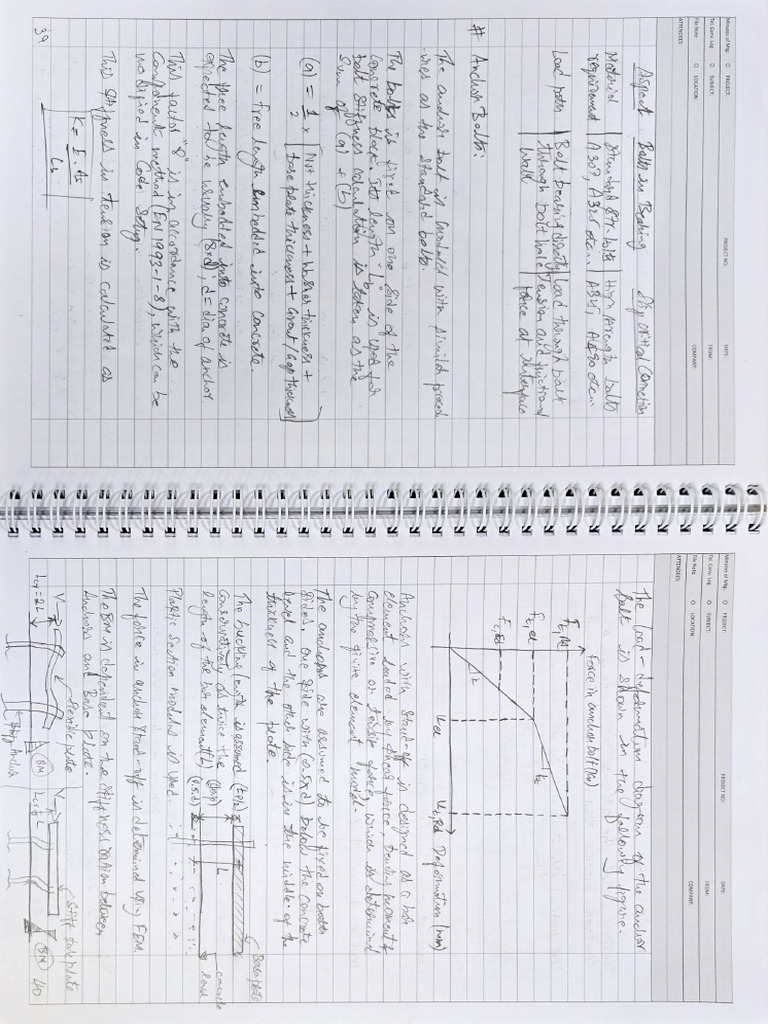 Minutes of Mtg. O PROJECT: PROJECT NO: DATE:
Tel. Conv. Log O SUBJECT: FROM:
File Note O LOCATION: COMPANY:
ATTENDEES:
Aspect Bolts in Bearing Slip Critical Connection
Material Standard Str. bolts High strength bolts
requirement A307, A325 etc.. A325, A490 etc..
Load path Bolt bearing directly Load through bolt
through bolt hole tension and frictional
walls force at interface
# Anchor Bolts:
The anchor bolt is with similar proced
-ures as the standard bolts.
The bolts is fixed on one side of the
concrete block. Its length "Lb" is used for
bolt stiffness calculation is taken as the
sum of (a) + (b)
(a) = 1/2 x [Nut thickness + Washer thickness +
base plate thickness + Grout/Gap thickness]
(b) = Free length embedded into concrete
The free length embedded into concrete is
expected to be usually (8xd), d = dia of anchor
This factor "8" is in accordance with the
Component method (EN1993-1-8), which can be
modified in Code Setup.
This stiffness in tension is calculated as
K = E . As / Lb
39
Minutes of Mtg. O PROJECT: PROJECT NO: DATE:
Tel. Conv. Log O SUBJECT: FROM:
File Note O LOCATION: COMPANY:
ATTENDEES:
The load - deformation diagram of the anchor
bolt is shown in the following figure.
Force in anchor bolt (kN)
Ft,Rd
Ft,el
Fc,Ed
k
kt
uel
ut,Rd Deformation (mm)
Anchor with Stand-off is designed as a bar
element loaded by shear force, bending moment &
compressive or tensile force, which is determined
by the finite element model.
The anchors are assumed to be fixed on both
sides. One side with (0.5xd) below the concrete
level and the other side is in the middle of the
thickness of the plate.
The buckling length is assumed
conservatively as twice the
length of the bar element (L)
Plastic section modulus is used.
(tp/2)
(Gap)
(0.5.d)
L
Base plate
concrete
level
The force in anchor stand-off is determined using FEM.
The BM is dependent on the stiffness ration between
Anchors and Base plate.
V
Flexible plate
Lcr=2L
Stiff Anchor
BM
V
Lcr=L
Stiff base plate
BM
40